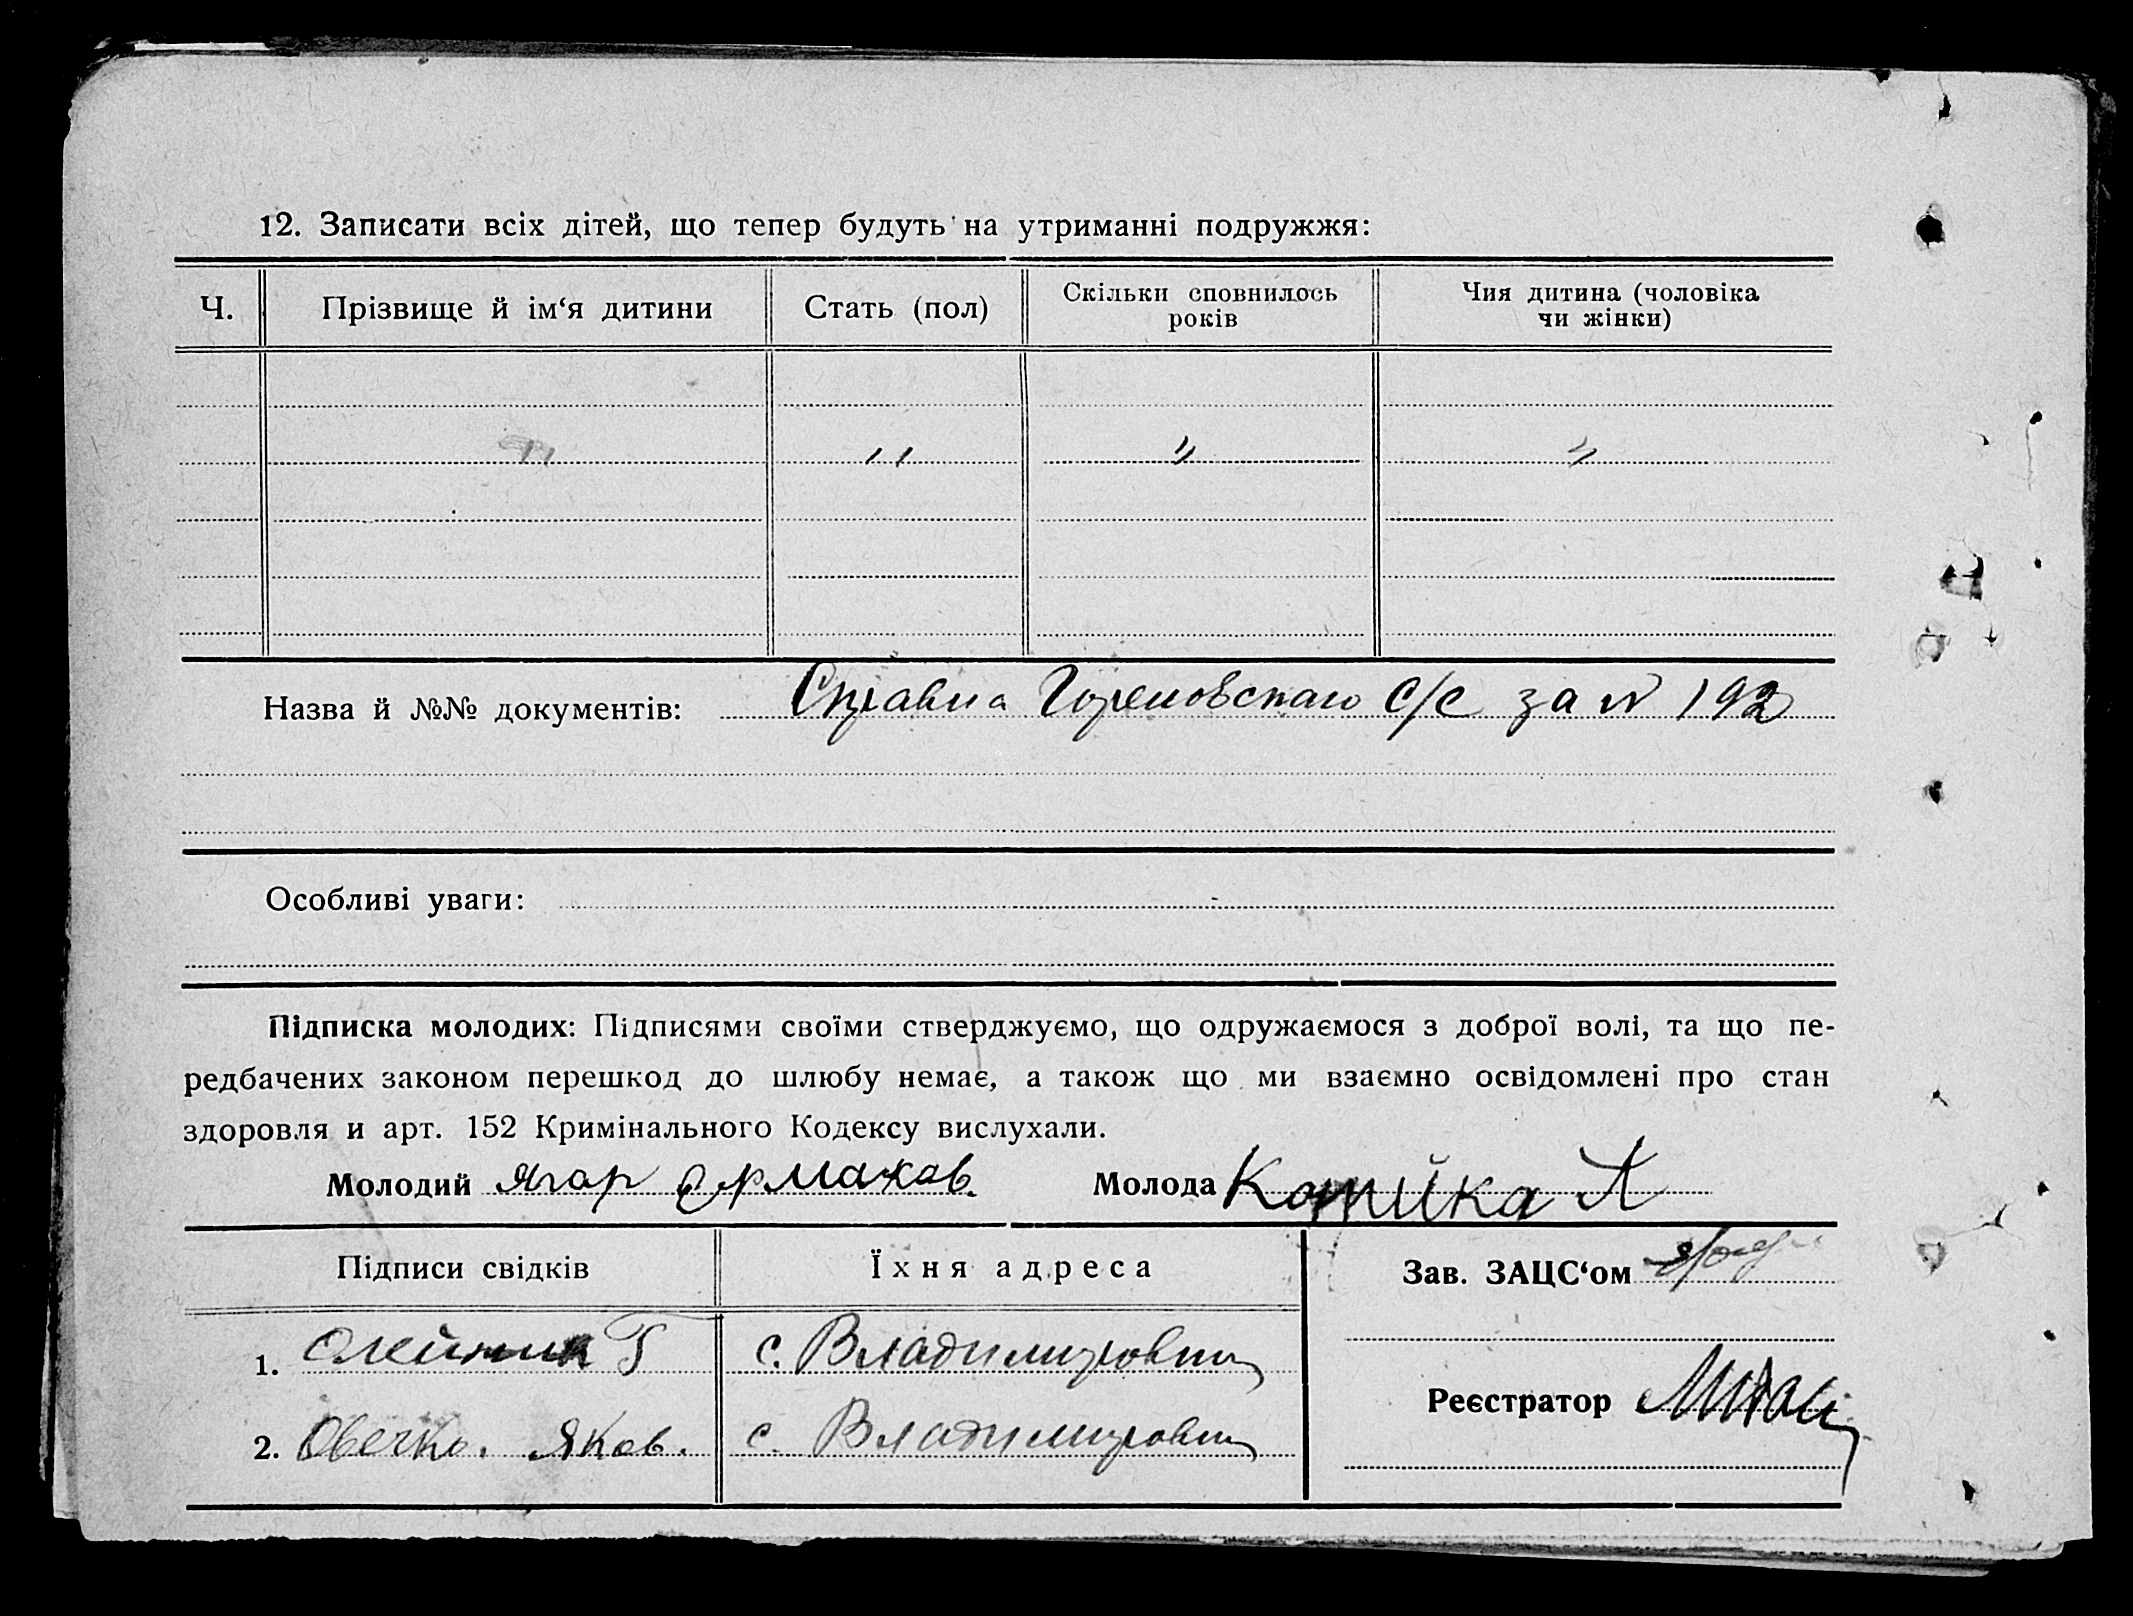 12. Записати всіх дітей, що тепер будуть на утриманні подружжя:
Ч. Прізвище й ім‘я дитини Стать (пол) Скільки сповнилось років Чия дитина (чоловіка чи жінки)
" " " "
Назва й №№ документів: Справка с/с за № 192
Особливі уваги:
Підписка молодих: Підписями своїми стверджуємо, що одружаємося з доброї волі, та що пе-
редбачених законом перешкод до шлюбу немає, а також що ми взаємно освідомлені про стан
здоровля и арт. 152 Кримінального Кодексу вислухали.
Молодий Ягор Ермаков. Молода А
Підписи свідків Їхня адреса Зав. ЗАЦС‘ом
1. Олейник Г с. Владимировки
Реєстратор
2. Овечко. Яков. с. Владимировки